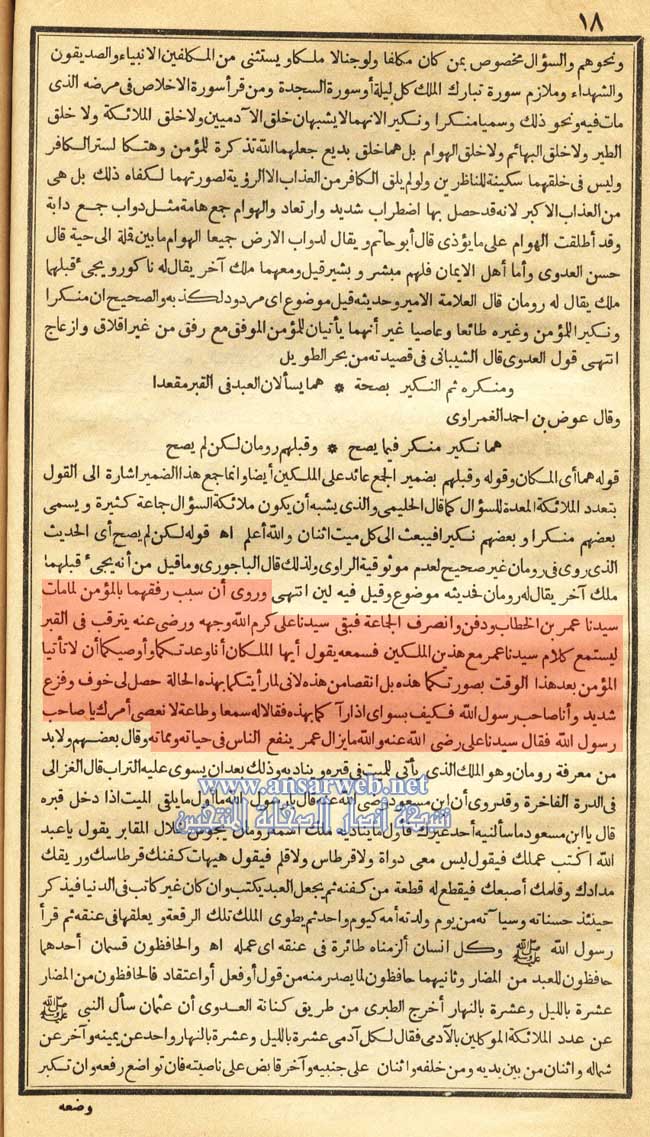 ١٨
ونحوهم والسؤال مخصوص بمن كان مكلفا ولو جنا لا ملكا ويستثنى من المكلفين الانبياء والصديقون
والشهداء وملازم سورة تبارك الملك كل ليلة أو سورة السجدة ومن قرأ سورة الاخلاص فى مرضه الذى
مات فيه ونحو ذلك وسميا منكرا ونكير الانهما لا يشبهان خلق الآدميين ولا خلق الملائكة ولا خلق
الطير ولا خلق البهائم ولا خلق الهوام بل هما خلق بديع جعلهما الله تذكرة للمؤمن وهتكا لستر الكافر
وليس فى خلقهما سكينة للناظرين ولو لم يلق الكافر من العذاب الا الرؤية لصورتهما لكفاه ذلك بل هى
من العذاب الاكبر لانه قد حصل بها اضطراب شديد وارتعاد والهوام جمع هامة مثل دواب جمع دابة
وقد أطلقت الهوام على ما يؤذى قال أبو حاتم و يقال لدواب الارض جميعا الهوام مابين قملة الى حية قال
حسن العدوى وأما أهل الايمان فلهم مبشر و بشير قيل ومعهما ملك آخر يقال له ناكور و يجىء قبلهما
ملك يقال له رومان قال العلامة الامير وحديثه قيل موضوع اى مردود لكذبه والصحيح ان منكرا
ونكير اللمؤمن وغيره طائعا وعاصيا غير أنهما يأتيان للمؤمن الموفق مع رفق من غير اقلاق وازعاج
انتهى قول العدوى قال الشيبانى فى قصيدته من بحر الطويل
ومنكره ثم النكير بصحة * هما يسألان العبد فى القبر مقعدا
وقال عوض بن احمد الغمراوى
هما نكير منكر فيما يصح * وقبلهم رومان لكن لم يصح
قوله هما أى المكان وقوله وقبلهم بضمير الجمع عائد على الملكين أيضا وانما جمع هذا الضمير اشارة الى القول
بتعدد الملائكة المعدة للسؤال كما قال الحليمى والذى يشبه أن يكون ملائكة السؤال جماعة كثيرة و يسمى
بعضهم منكرا و بعضهم نكيرا فيبعث الى كل ميت اثنان والله أعلم اه قوله لكن لم يصح أى الحديث
الذى روى فى رومان غير صحيح لعدم موثوقية الراوى ولذلك قال الباجورى وما قيل من أنه يجىء قبلهما
ملك آخر يقال له رومان فحديثه موضوع وقيل فيه لين انتهى وروى أن سبب رفقهما بالمؤمن لما مات
سيدنا عمر بن الخطاب ودفن وانصرف الجماعة فبقى سيدنا على كرم الله وجهه ورضى عنه يترقب فى القبر
ليستمع كلام سيدنا عمر مع هذين الملكين فسمعه يقول أيها الملكان أنا وعدتكما وأوصيكما أن لا تأتيا
المؤمن بعد هذا الوقت بصورتكما هذه بل انقصا من هذه لانى لما رأيتكما بهذه الحالة حصل لى خوف وفزع
شديد وأنا صاحب رسول الله فكيف بسواى اذا رآكما بهذه فقالا له سمعا وطاعة لا نعصى أمرك يا صاحب
رسول الله فقال سيدنا على رضى الله عنه والله ما يزال عمر ينفع الناس فى حياته ومماته وقال بعضهم ولا بد
من معرفة رومان وهو الملك الذى يأتى للميت فى قبره ويناديه وذلك بعد ان يسوى عليه التراب قال الغزالى
فى الدرة الفاخرة وقد روى أن ابن مسعود رضى الله عنه قال يا رسول الله ما أول ما يلقى الميت اذا دخل قبره
www.ansarweb.net
قال يا ابن مسعود ما سألنيه أحد غيرك فأول ما يناديه ملك اسمه رومان يجوس خلال المقابر يقول يا عبد
شبكة أنصار الصحابة المنتجبين
الله اكتب عملك فيقول ليس معى دواة ولا قرطاس ولا قلم فيقول هيهات كفنك قرطاسك وريقك
مدادك وقلمك أصبعك فيقطع له قطعة من كفنه ثم يجعل العبد يكتب وان كان غير كاتب فى الدنيا فيذكر
حينئذ حسناته وسيآته من يوم ولدته أمه كيوم واحد ثم يطوى الملك تلك الرقعة و يعلقها فى عنقه ثم قرأ
رسول الله ﷺ وكل انسان ألزمناه طائره فى عنقه اى عمله اه والحافظون قسمان أحدهما
حافظون للعبد من المضار وثانيهما حافظون لما يصدر منه من قول أو فعل أو اعتقاد فالحافظون من المضار
عشرة بالليل وعشرة بالنهار أخرج الطبرى من طريق كنانة العدوى أن عثمان سأل النبى ﷺ
عن عدد الملائكة الموكلين بالآدمى فقال لكل آدمى عشرة بالليل وعشرة بالنهار واحد عن يمينه وآخر عن
شماله واثنان من بين يديه ومن خلفه واثنان على جنبيه وآخر قابض على ناصيته فان تواضع رفعه وان تكبر
وضعه